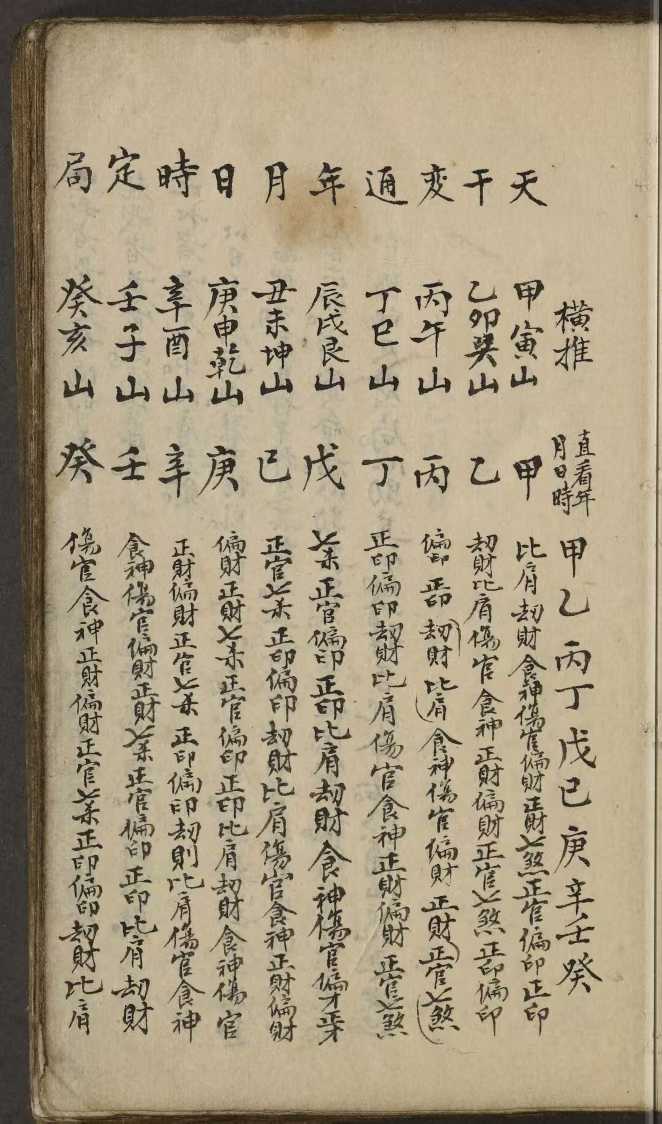 橫推 直看年月日時 甲乙丙丁戊己庚辛壬癸
天 甲寅山 甲 比肩刼財食神傷官偏財正財七煞正官偏印正印
干 乙卯巽山 乙 刼財比肩傷官食神正財偏財正官七煞正印偏印
変 丙午山 丙 偏印正印刼財比肩食神傷官偏財正財正官七煞
通 丁巳山 丁 正印偏印刼財比肩傷官食神正財偏財正官七煞
年 辰戌艮山 戊 七杀正官偏印正印比肩刼財食神傷官偏才正才
月 丑未坤山 己 正官七杀正印偏印刼財比肩傷官食神正財偏財
日 庚申乾山 庚 偏財正財七杀正官偏印正印比肩刼財食神傷官
時 辛酉山 辛 正財偏財正官七杀正印偏印刼則比肩傷官食神
定 壬子山 壬 食神傷官偏財正財七杀正官偏印正印比肩刼財
局 癸亥山 癸 傷官食神正財偏財正官七杀正印偏印刼財比肩